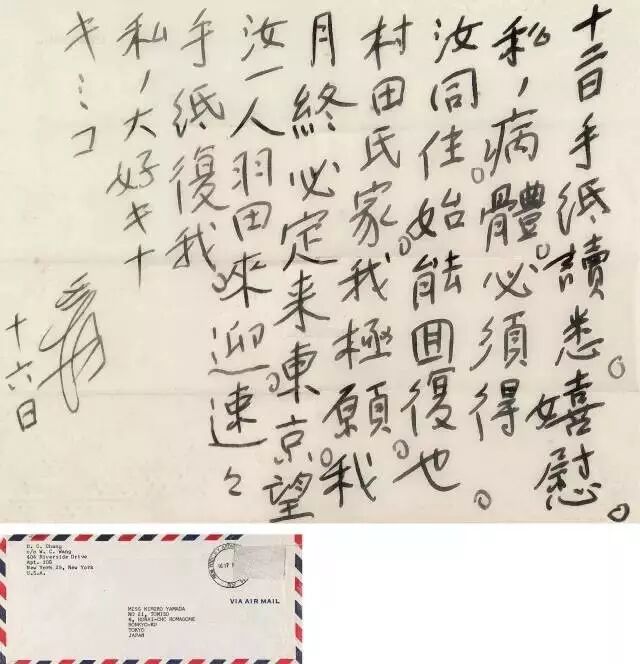 十二日手紙讀悉。嬉慰。
私ノ病體。必須得
汝同住。始能囬復也。
村田氏家。我極願。我
月終必定来東京。望
汝一人羽田來迎。速々
手紙復我。
私ノ大好キナ
キミコ
爰
十六日
D. C. Chang
c/o W. C. Wang
404 Riverside Drive
Apt. 10B
New York 25, New York
U.S.A.
VIA AIR MAIL
MISS KIMIKO YAMADA
NO 21, TOMISO
6, CHO KOMAGOME
TOKYO
JAPAN